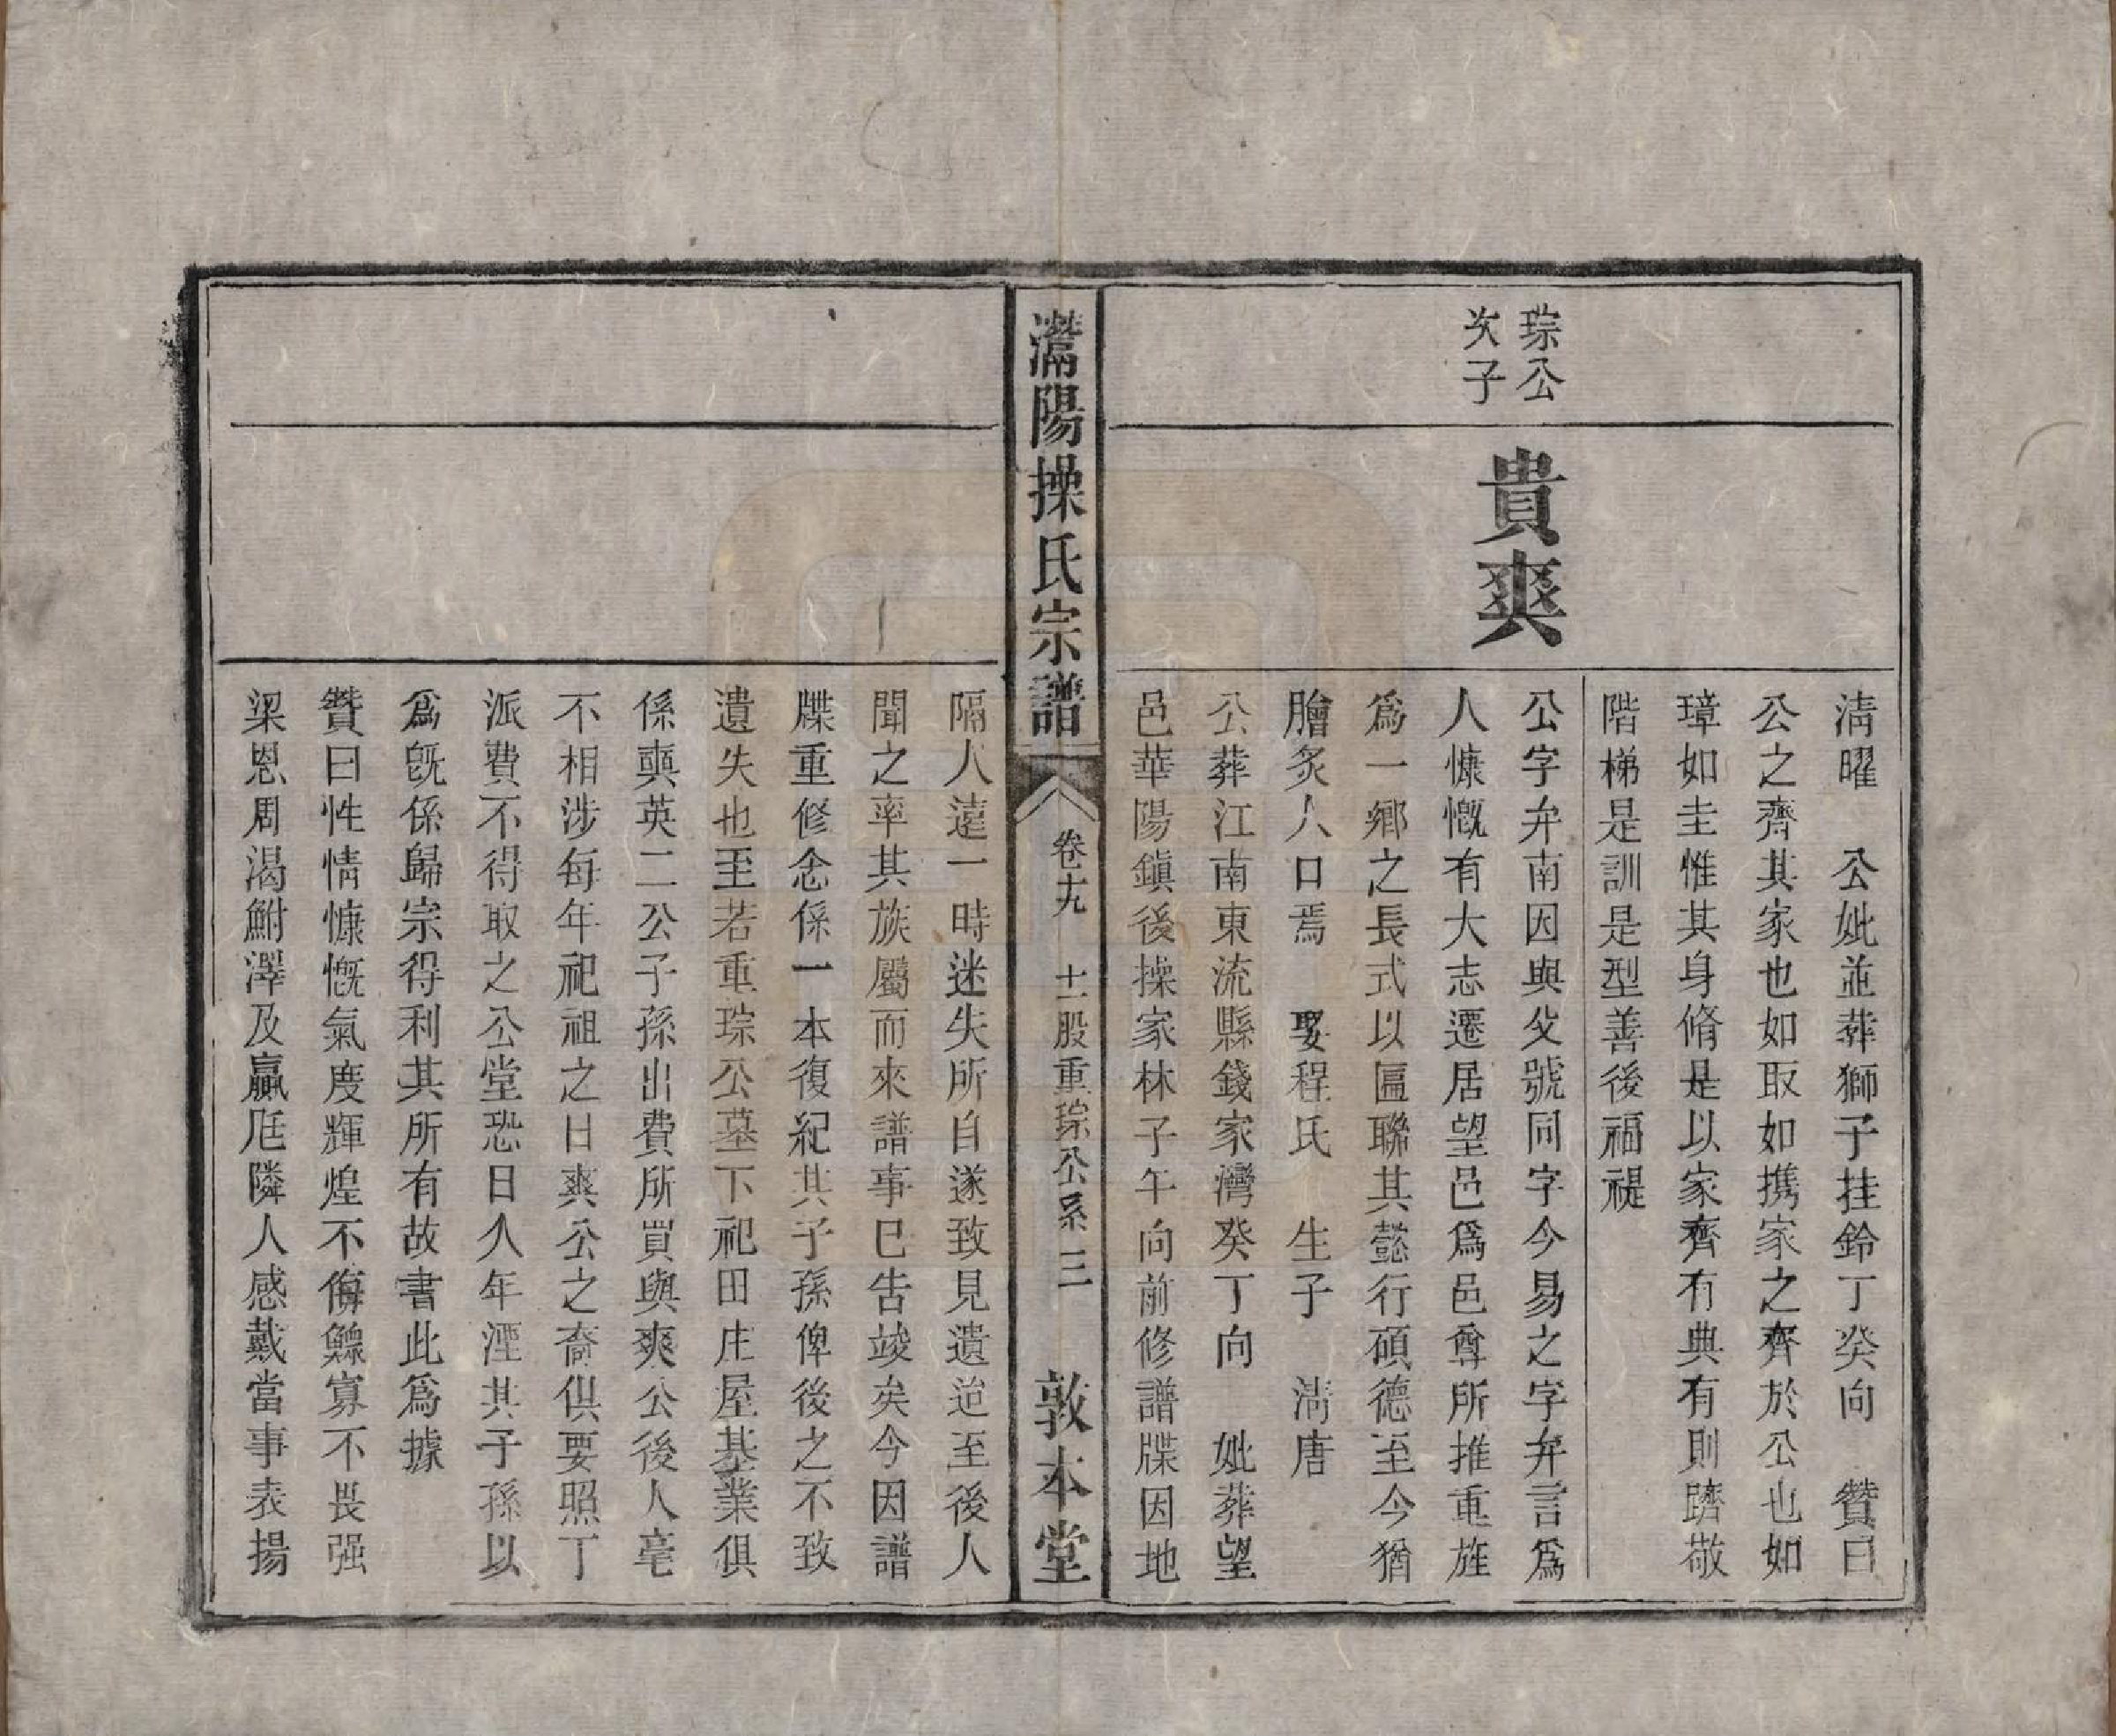 琮公
次子
貴爽
清曜　公妣並葬獅子挂鈴丁癸向　贊曰
公之齊其家也如取如携家之齊於公也如
璋如圭惟其身脩是以家齊有典有則躋敬
階梯是訓是型善後福禔
公字弁南因與父號同字今易之字弁言爲
人慷慨有大志遷居望邑爲邑尊所推重旌
爲一鄉之長式以匾聯其懿行碩德至今猶
膾炙人口焉　娶程氏　生子　清唐
公葬江南東流縣錢家灣癸丁向　妣葬望
邑華陽鎭後操家林子午向前修譜牒因地
灊陽操氏宗譜
卷十九
十一股重琮公系
三
敦本堂
隔人遠一時迷失所自遂致見遺迨至後人
聞之率其族屬而來譜事已告竣矣今因譜
牒重修念係一本復紀其子孫俾後之不致
遺失也至若重琮公墓下祀田庄屋基業俱
係奭英二公子孫出費所買與爽公後人毫
不相涉每年祀祖之日爽公之裔俱要照丁
派費不得取之公堂恐日久年湮其子孫以
爲旣係歸宗得利其所有故書此爲據
贊曰性情慷慨氣度輝煌不侮鰥寡不畏强
梁恩周渴鮒澤及羸尫隣人感戴當事表揚